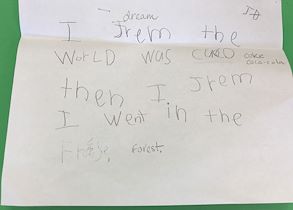 dream
I Jrem the
WORLD WAS CUKD coke
coca-cola
then I Jrem
I went in the
forest.